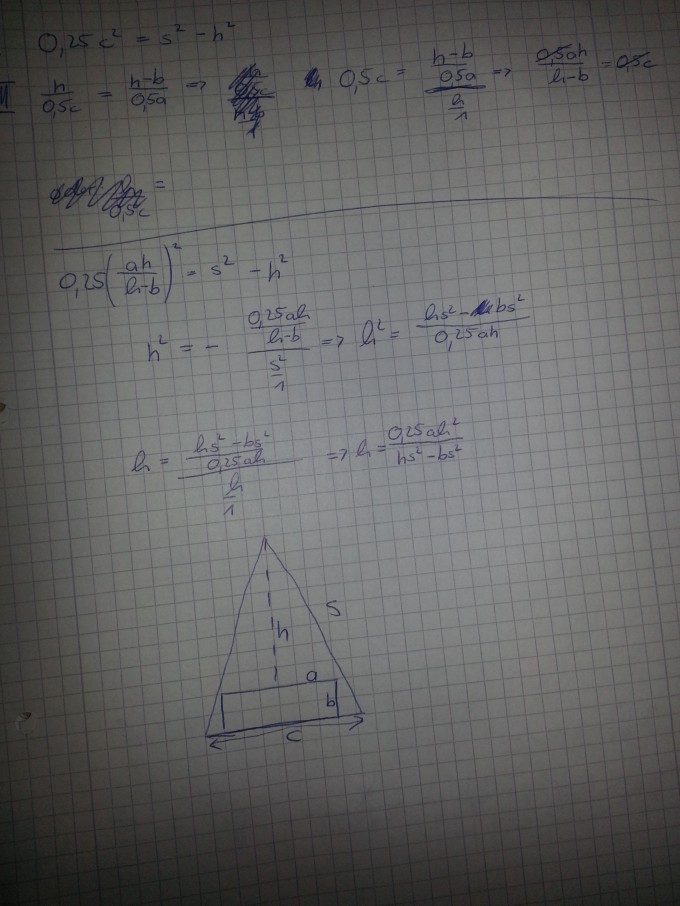 0,25c² = s² - h²
III h/0,5c = h-b/0,5a => 0,5c = h-b/0,5a / h/1 => 0,5ah/h-b = 0,5c
0,5c =
0,25(ah/h-b)² = s² - h²
h² = - 0,25ah/h-b / s²/1 => h² = hs² - bs²/0,25ah
h = hs² - bs²/0,25ah / h/1 => h = 0,25ah²/hs² - bs²
s
h
a
b
c